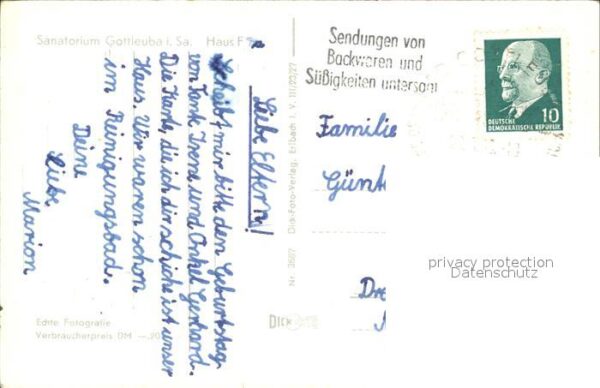 Sanatorium Gottleuba i. Sa. Haus F
Liebe Eltern!
Schreibt mir bitte den Geburtstag
von Tante Irena und Onkel Gerhard.
Die Karte, die ich dir schicke ist unser
Haus. Wir waren schon
im Reinigungsbad.
Deine
Liebe
Marion
Echte Fotografie
Verbraucherpreis DM
Nr. 3887 Dick-Foto-Verlag, Erlbach i. V.
DICK
Sendungen von
Backwaren und
Süßigkeiten untersagt
10
DEUTSCHE
DEMOKRATISCHE REPUBLIK
Familie
Günt
Dre
privacy protection
Datenschutz